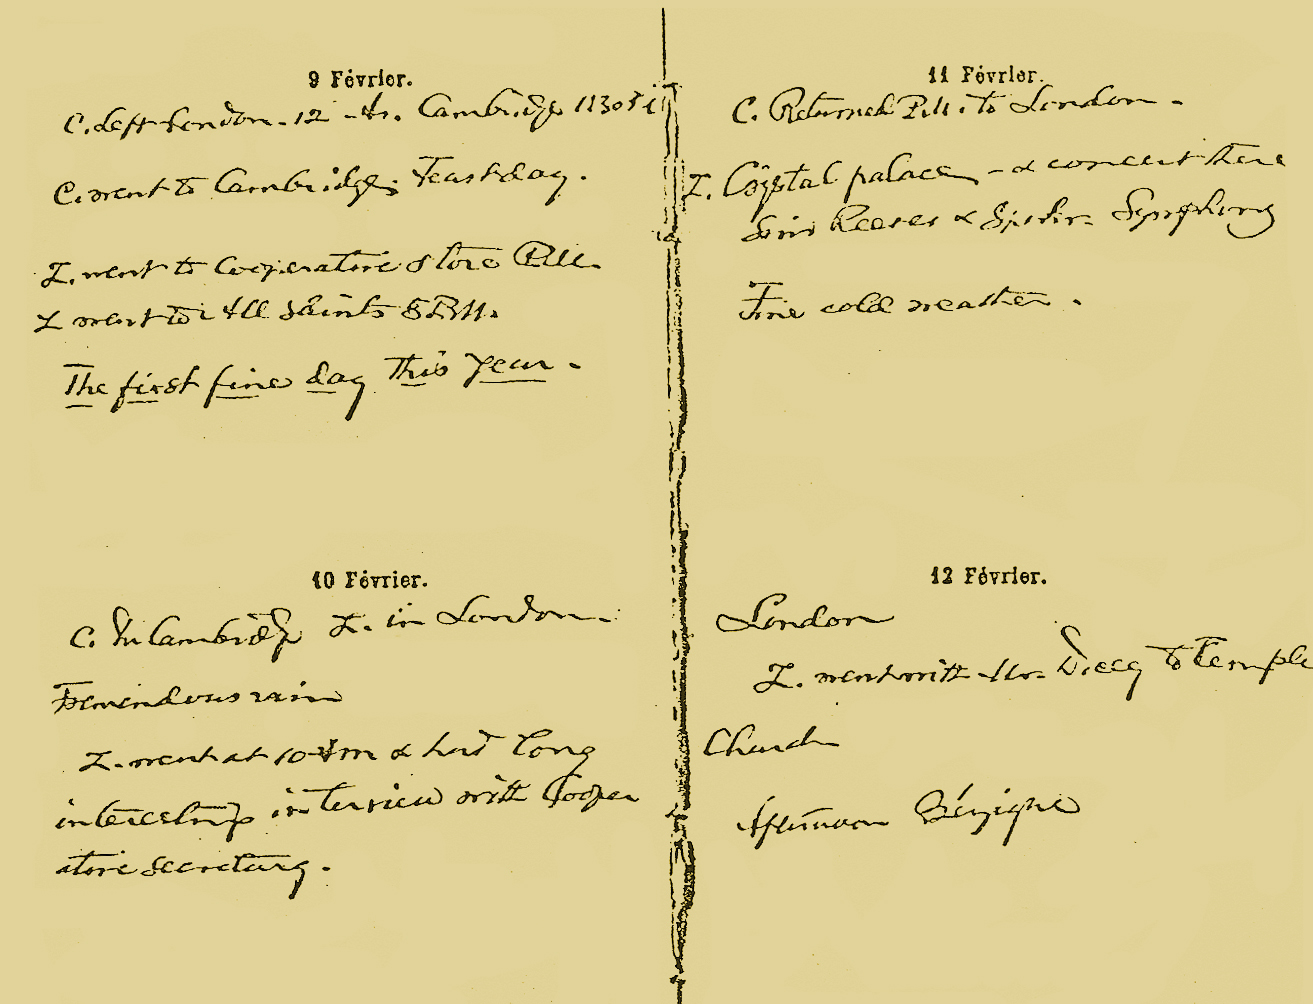 9 Février.
C. Left London. 12 - arr. Cambridge 1130
C. went to Cambridge. Feastday.
Z. went to Cooperative Store
Z went to All Saints 8 P.M.
The first fine day this year.
10 Février.
C. In Cambridge Z. in London.
Tremendous rain
Z. went at 10 & had long
interesting interview with Cooper
ative secretary.
11 Février.
C. Returned to London.
Z. Crystal palace - & concert there
Sims Reeves & Symphony
Fine cold weather.
12 Février.
London
Z. went with to Temple
Church
Afternoon Bézique